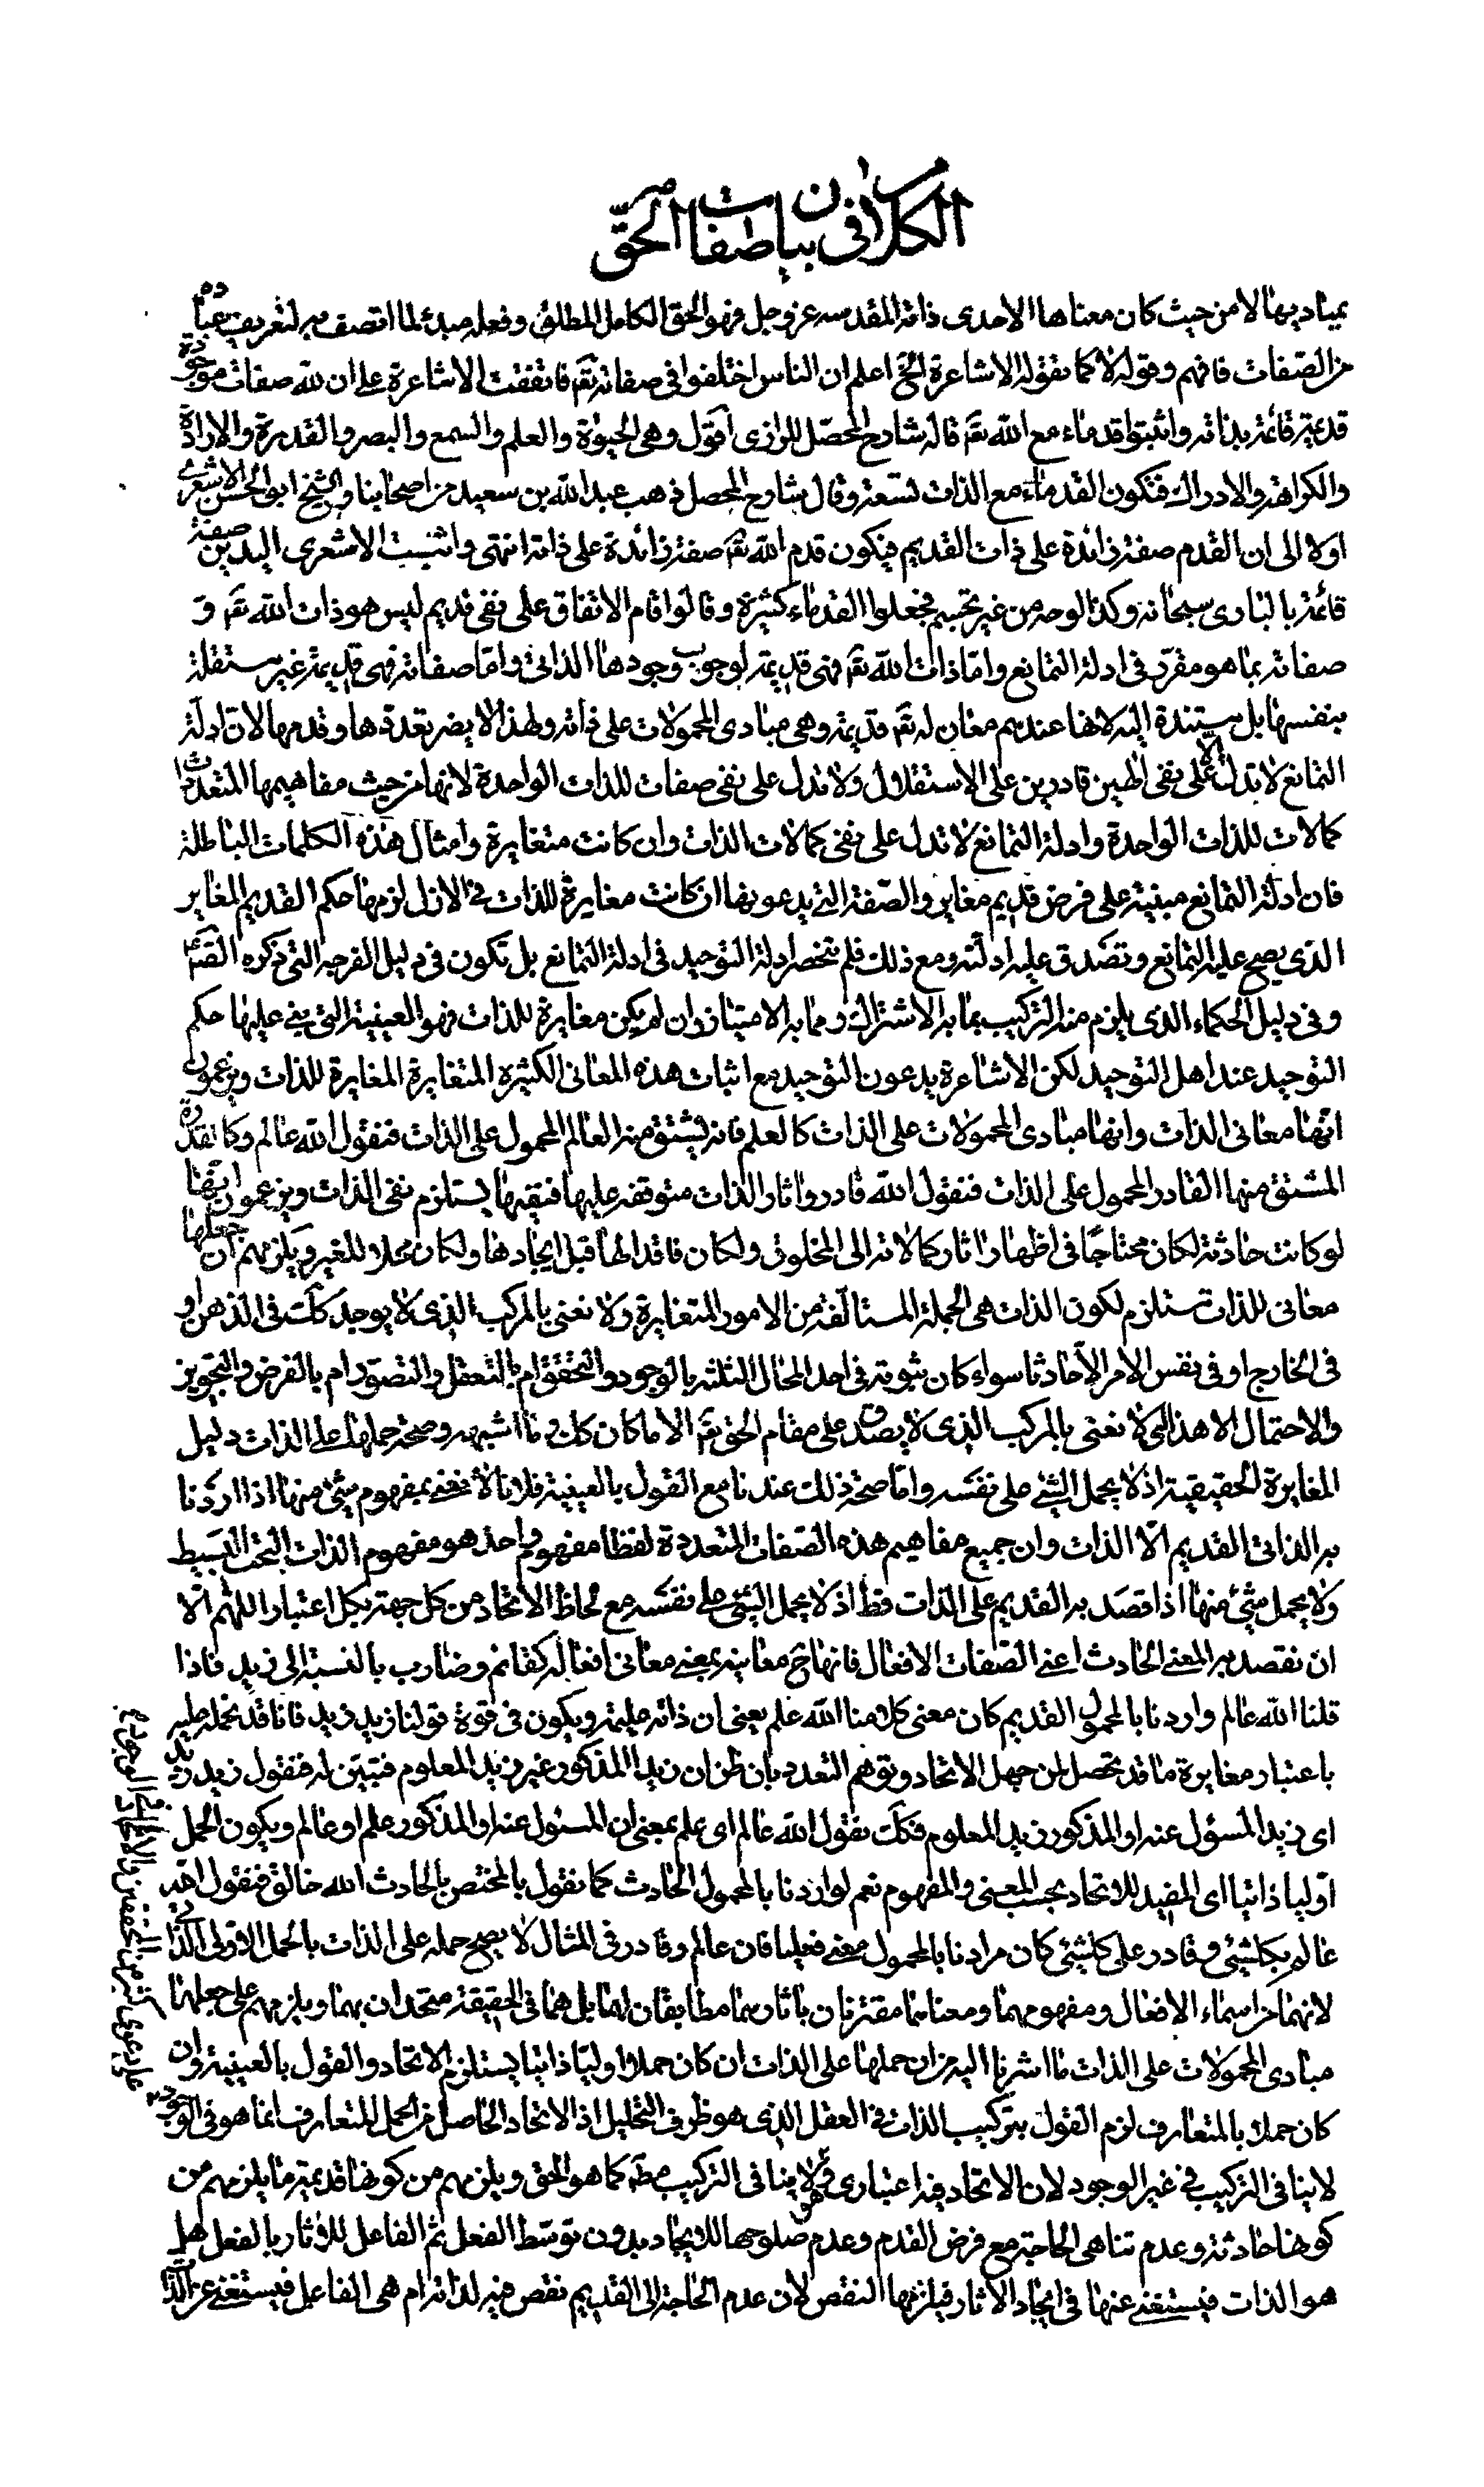 الكلام في بيان صفات الحق
بمباديها الا من حيث كان معناها الاحدى ذاته المقدسه عز وجل فهو الحق الكامل المطلق وفعله مبدء لما اتصف به لتعريف عباده
من الصّفات فافهم وقوله لا كما تقوله الاشاعرة الخ اعلم ان الناس اختلفوا في صفاته تعم فاتفقت الاشاعرة على ان لله صفات موجودة
قديمة قائمة بذاته واثبتوا قدماء مع الله تعم قاله شارح المحصّل للرازى اقول وهي الحيوة والعلم والسمع والبصر والقدرة والارادة
والكراهة والادراك فتكون القدماء مع الذات تسعة وقال شارح المحصل ذهب عبد الله بن سعيد من اصحابنا والشيخ ابو الحسن الاشعرى
اولا الى ان القدم صفة زائدة على ذات القديم فيكون قدم الله تعم صفة زائدة على ذاته انتهى واثبت الاشعرى اليدين صفة
قائمة بالبارى سبحانه وكذا الوجه من غير تجسيم فجعلوا القدماء كثيرة وقالوا قام الاتفاق على نفى قديم ليس هو ذات الله تعم و
صفاته بما هو مقرّر في ادلة التمانع وامّا ذات الله تعم فهى قديمة لوجوب وجودها الذاتى وامّا صفاته فهى قديمة غير مستقلة
بنفسها بل مستندة اليه لانها عندهم معان له تعم قديمة وهي مبادى المحمولات على ذاته ولهذا لا يضر تعددها وقدمها لان ادلّة
التمانع لا تدل الا على نفى الهين قادرين على الاستقلال ولا تدل على نفى صفات للذات الواحدة لانها من حيث مفاهيمها المتعددة
كمالات للذات الواحدة وادلة التمانع لا تدل على نفى كمالات الذات وان كانت متغايرة وامثال هذه الكلمات الباطلة
فان ادلة التمانع مبنية على فرض قديم مغاير والصّفة التي يدعونها ان كانت مغايرة للذات في الازل لزمها حكم القديم المغاير
الذى يصح عليه التمانع وتصدق عليه ادلّته ومع ذلك فلم تنحصر ادلة التوحيد في ادلة التمانع بل تكون في دليل الفرجة التي ذكره الصّم
وفي دليل الحكماء الذى يلزم منه التركيب بما به الاشتراك وما به الامتياز وان لم يكن مغايرة للذات فهو العينية التي بنى عليها حكم
التوحيد عند اهل التوحيد لكن الاشاعرة يدعون التوحيد مع اثبات هذه المعانى الكثيرة المتغايرة المغايرة للذات ويزعمون
انّها معانى الذات وانها مبادى المحمولات على الذات كالعلم فانه يشتق منه العالم المحمول على الذات فنقول الله عالم وكالقدرة
المشتق منها القادر المحمول على الذات فنقول الله قادر واثار الذات متوقفة عليها فنفيها يستلزم نفى الذات ويزعمون انّها
لو كانت حادثة لكان محتاجًا في اظهار اثار كمالاته الى المخلوق ولكان فاقدا لها قبل ايجادها ولكان محلا للغير ويلزمهم ان جعلها
معانى للذات مستلزم لكون الذات هى الجملة المستألفة من الامور المتغايرة ولا نعنى بالمركب الذى لا يوجد كلّت في الذهن او
في الخارج او في نفس الامر الّا حادثا سواء كان ثبوته في احد المحال الثلثة بالوجود والتحقق ام بالتعقل والتصوّر ام بالفرض والتجويز
والاحتمال الا هذا لكن لا نعنى بالمركب الذى لا يصدق على مقام الحق تعم الا ما كان كك وما اشبهه وصحة حملها على الذات دليل
المغايرة الحقيقية اذ لا يحمل الشئ على نفسه وامّا صحة ذلك عندنا مع القول بالعينية فلانا لا نعنى بمفهوم شئ منها اذا اردنا
به الذاتى القديم الّا الذات وان جميع مفاهيم هذه الصّفات المتعددة لفظا مفهوم واحد هو مفهوم الذات البحت البسيط
ولا يحمل شئ منها اذا قصد به القديم على الذات قط اذ لا يحمل الشئ على نفسه مع لحاظ الاتحاد من كل جهة بكل اعتبار اللهم الّا
ان نقصد به المعنى الحادث اعنى الصّفات الافعال فانها ح معانيه بمعنى معانى افعاله كقائم وضارب بالنسبة الى زيد فاذا
قلنا الله عالم واردنا بالمحمول القديم كان معنى كلامنا الله علم يعنى ان ذاته عليمة ويكون في قوة قولنا زيد زيد فانا قد نحمله عليه
باعتبار مغايرة ما قد تحصل لمن جهل الاتحاد وتوهم التعدد بان ظن ان زيدا المذكور غير زيد المعلوم فتبيّن له فنقول زيد زيد
اى زيد المسؤل عنه او المذكور زيد المعلوم فكلّت نقول الله عالم اى علم بمعنى ان المسئول عنه او المذكور علم او عالم ويكون الحمل
اوّليا ذاتيا اى المفيد للاتحاد بحسب المعنى والمفهوم نعم لو اردنا بالمحمول الحادث كما نقول بالمختص بالحادث الله خالق فنقول الله
عالم بكلشئ وقادر على كلشئ كان مرادنا بالمحمول معنى فعليا فان عالم وقادر في المثال لا يصح حمله على الذات بالحمل الاوّلى الذاتى
لانهما من اسماء الافعال ومفهومهما ومعناهما مقترنان باثارهما مطابقان لهما بل هما في الحقيقة متحدان بهما ويلزمهم على جعلها
مبادى المحمولات على الذات ما اشرنا اليه من ان حملها على الذات ان كان حملا اوليّا ذاتيا يستلزم الاتحاد والقول بالعينية وان
كان حملا بالمتعارف لزم القول بتركيب الذات في العقل الذى هو ظرف التحليل اذ الاتحاد الحاصل من الحمل المتعارف انما هو في الوجود
لا ينافى التركيب في غير الوجود لان الاتحاد فيه اعتبارى وهو لا ينافى التركيب مطّه كما هو الحق ويلزمهم من كونها قديمة ما يلزمهم من
كونها حادثة وعدم تناهى الحاجة مع فرض القدم وعدم صلوحها للايجاد بدون توسّط الفعل ثم الفاعل للاثار بالفعل هل
هو الذات فيستغنى عنها في ايجاد الاثار فيلزمها النقص لان عدم الحاجة الى القديم نقص فيه لذاته ام هى الفاعل فيستغنى عن الذات